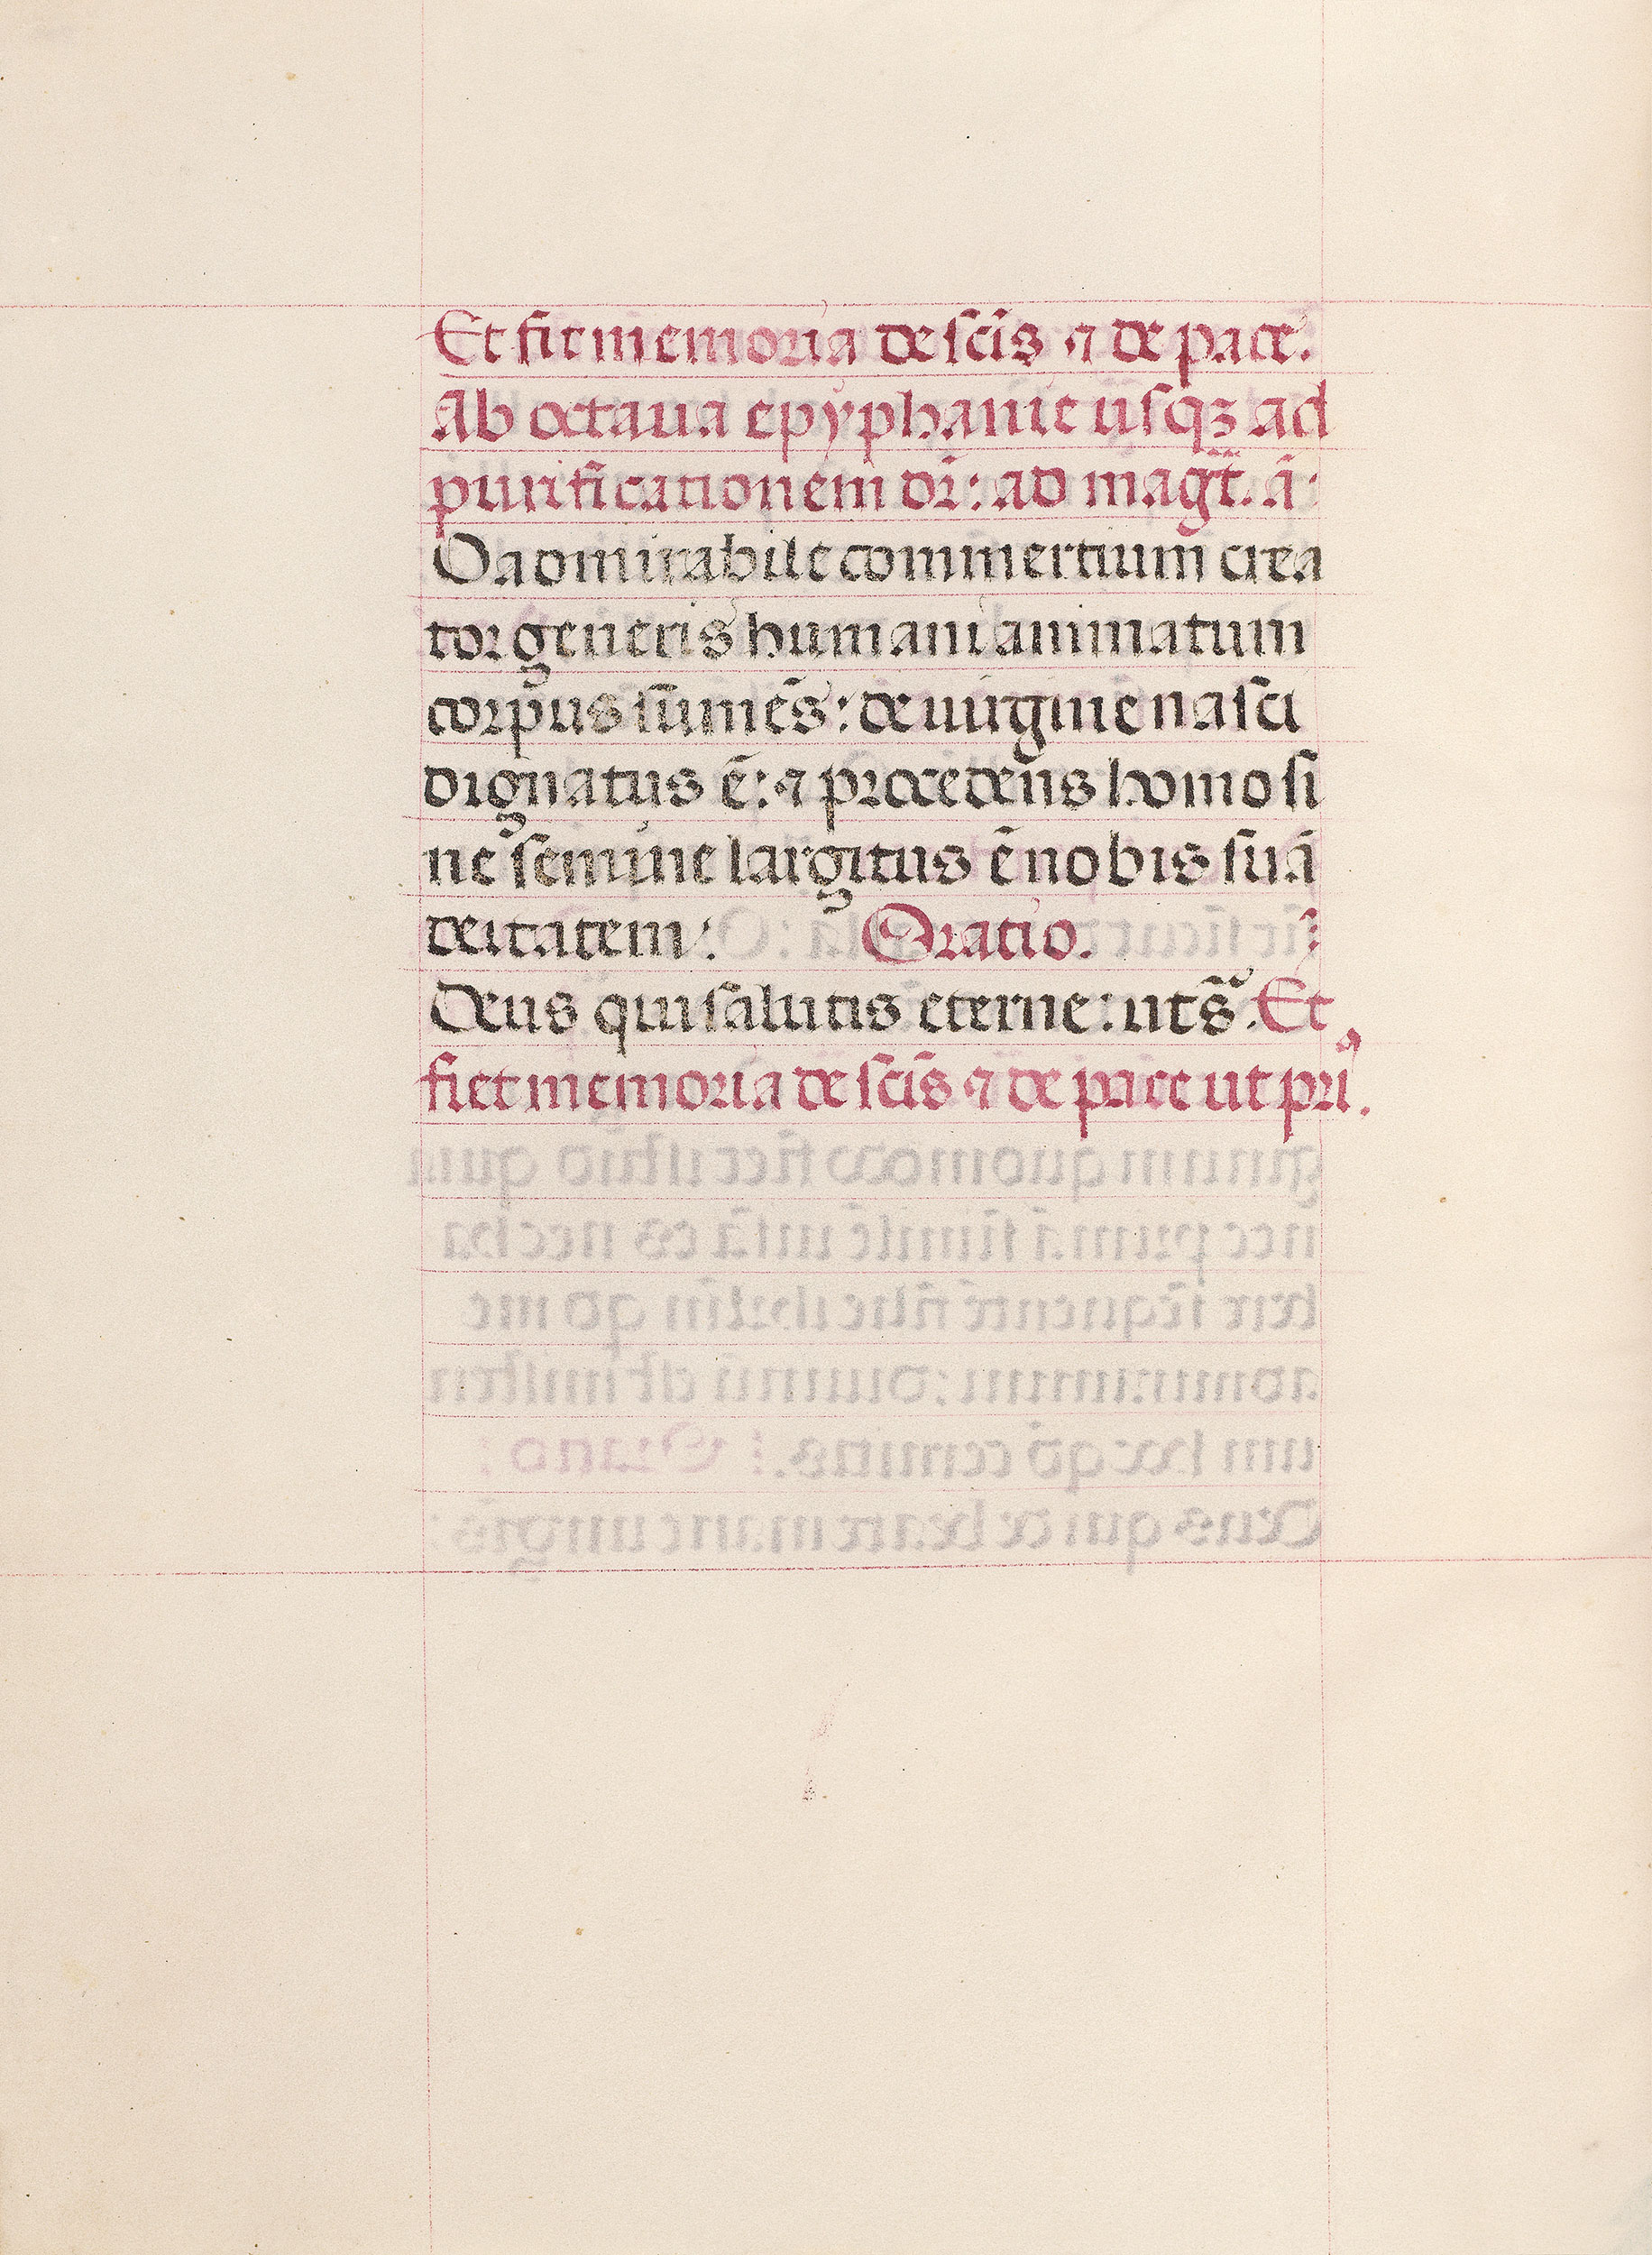 Et fit memoria de scīs ⁊ de pace.
Ab octaua epyphanie usqꝫ ad
purificationem dr̄: ad magt̄. ā:
O admirabile commertium crea
tor generis humani animatum
corpus sumēs: de uirgine nasci
dignatus ē: ⁊ procedens homo si
ne semine largitus ē nobis suā
deitatem: Oratio.
Deus qui salutis eterne: ut s̄. Et
fiet memoria de scīs ⁊ de pace ut pri.